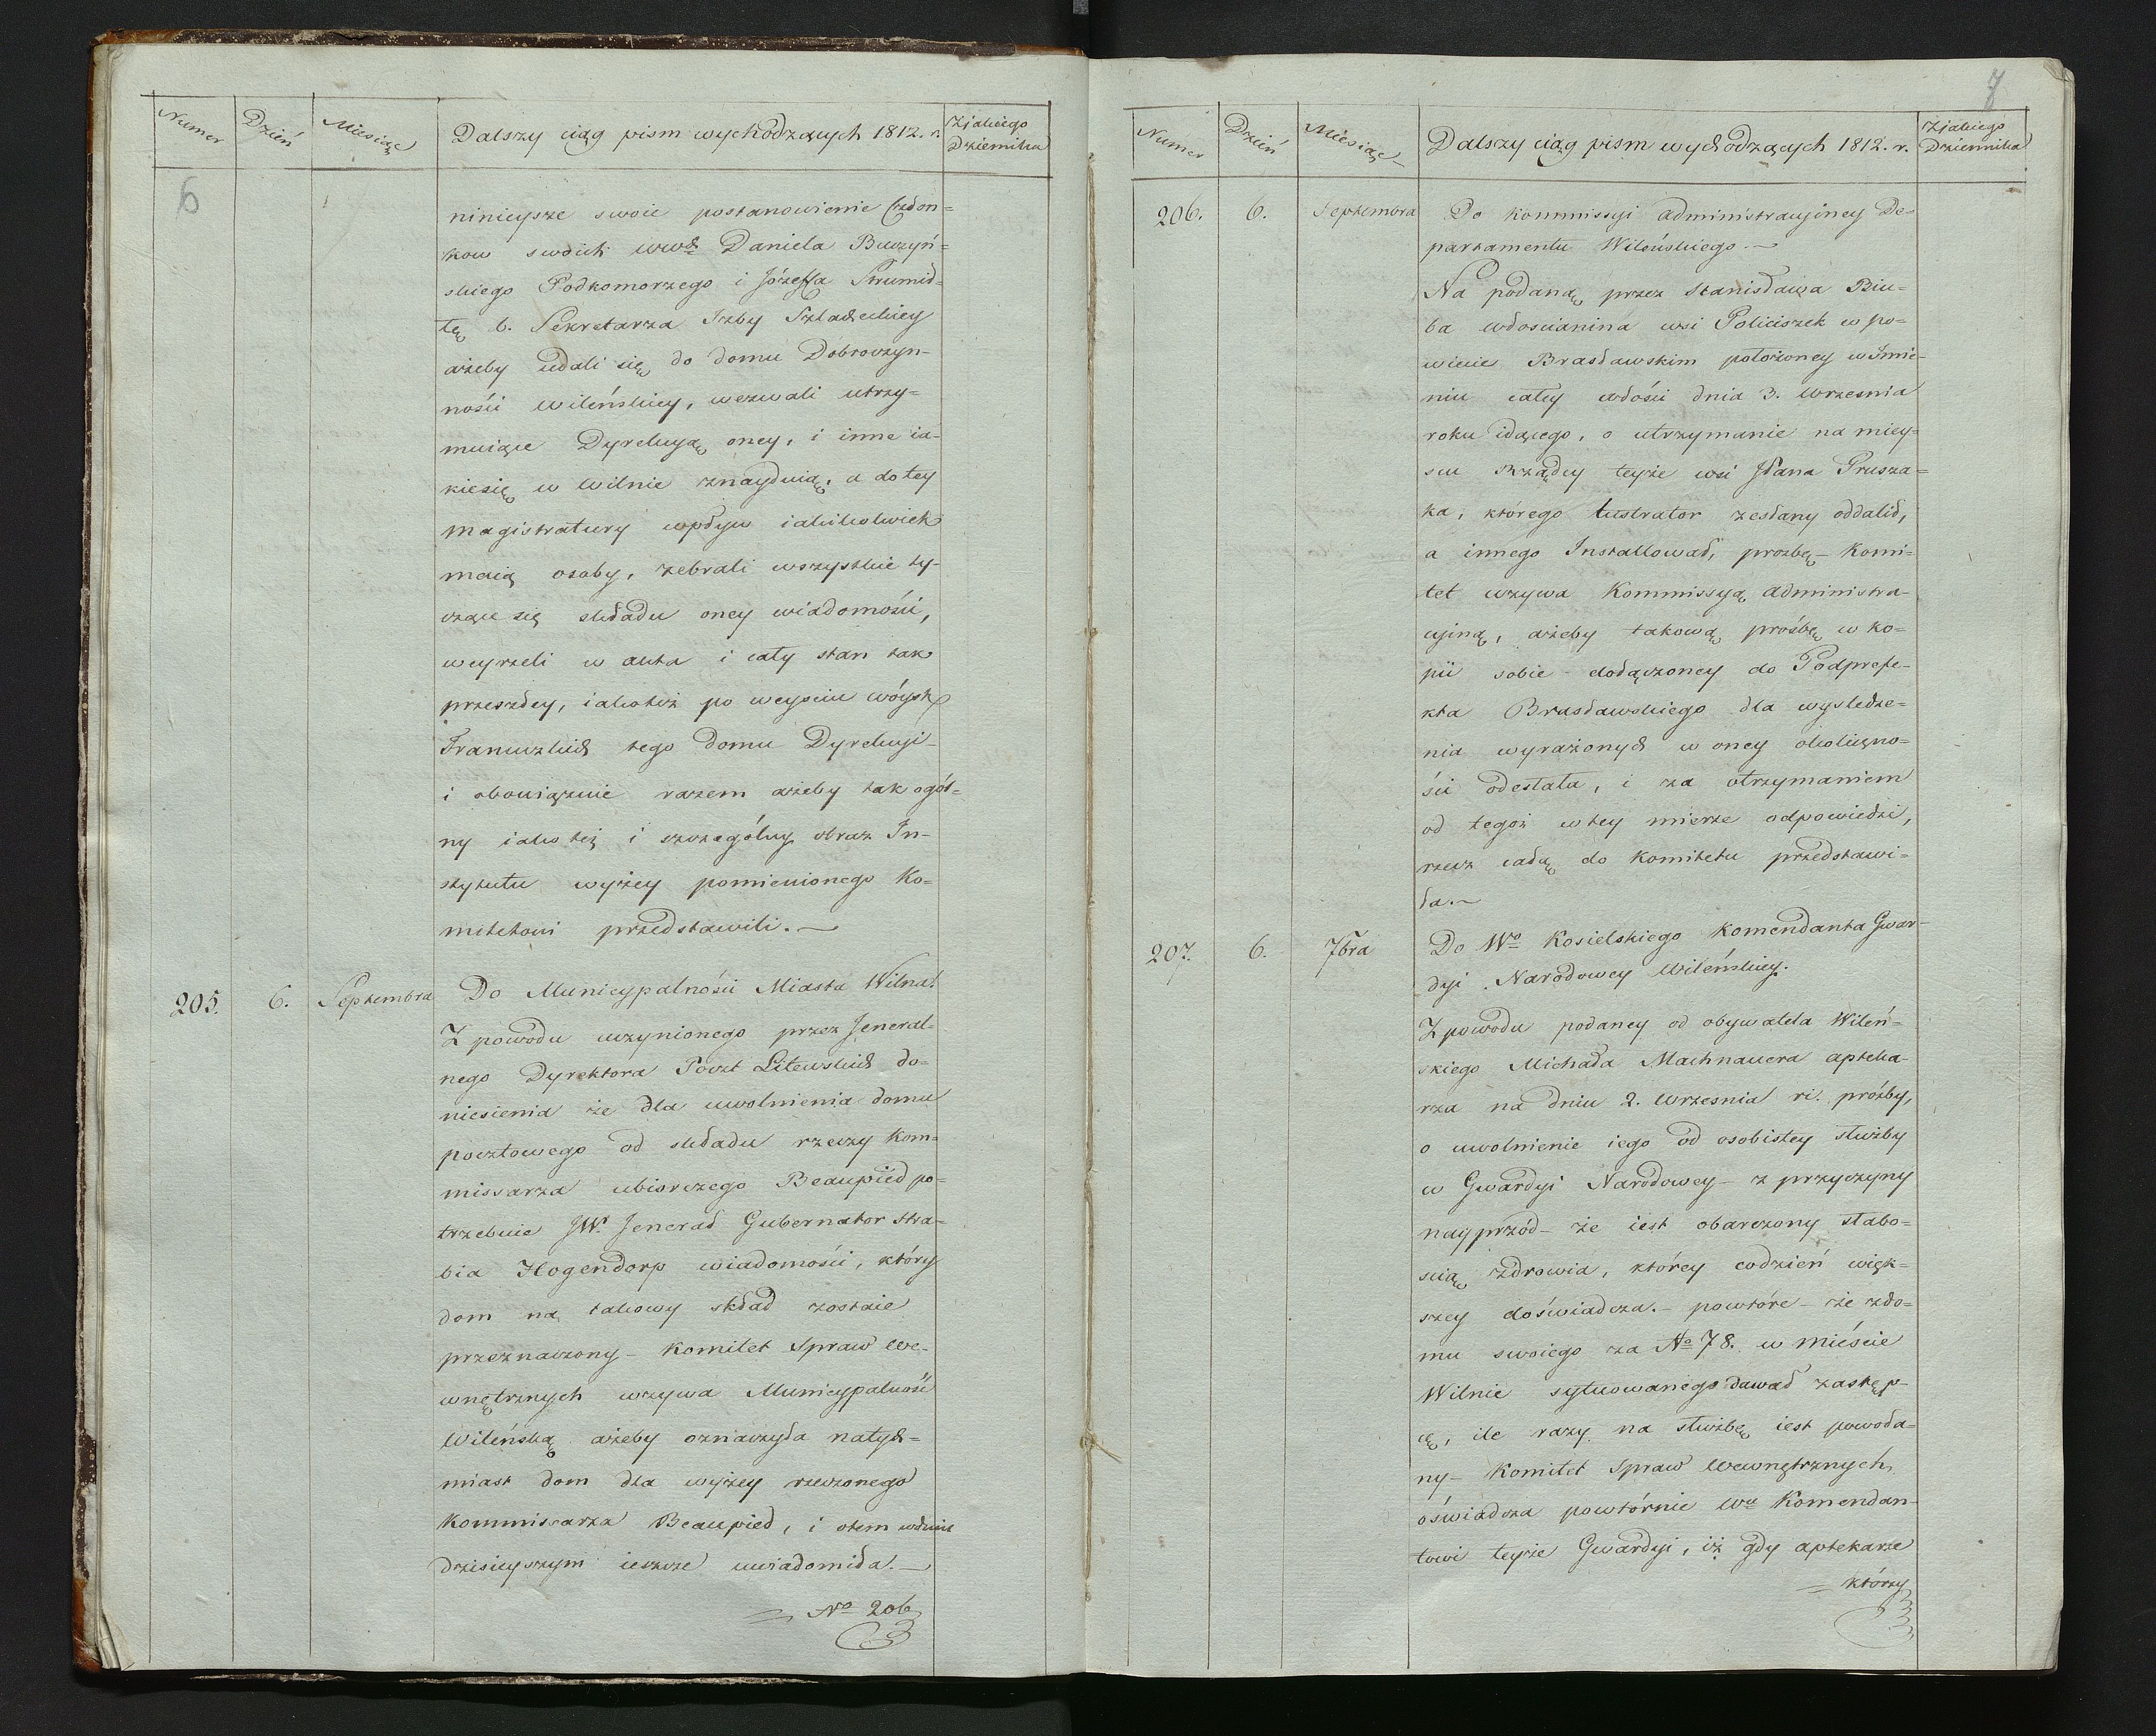 Numer Dzień Miesiąc Dalszy ciąg pism wychodzących 1812. r. Zjakiego Dziennika
6
ninieysze swoie postanowienie Człon=
kow swoich WWch Daniela Buczyń=
skiego Podkomorzego i Józeffa Strumił=
łę b. Sekretarza Izby Szlacheckiey
ażeby udali się do domu Dobroczyn-
ności Wileńskiey, wezwali utrzy=
muiące Dyrekcyą oney, i inne ia-
kiesię w Wilnie znayduią, a do tey
magistratury wpływ iakikolwiek
maią osoby, zebrali wszystkie ty-
czące się składu oney wiadomości,
weyrzeli w akta i cały stan tak
przeszłey, iakoteż po weyściu wóysk
Francuzkich tego domu Dyrekcyi-
i obowiązuie razem ażeby tak ogól=
ny iako też i szczegółny obraz In-
stytutu wyżey pomienionego Ko=
mitetowi przedstawili.—
205. 6. Septembra Do Municypalności Miasta Wilna!
Z powodu uczynionego przez Jeneral=
nego Dyrektora Poczt Litewskich do=
niesienia że dla uwolnienia domu
pocztowego od składu rzeczy Kom=
missarza ubiorczego Beaupied po=
trzebuie JW. Jenerał Gubernator Hra=
bia Hogendorp wiadomości, który
dom na takowy skład zostaie
przeznaczony – Komitet Spraw We-
wnętrznych wzywa Municypalność
Wileńską ażeby oznaczyła natych=
miast dom dla wyżey rzeczonego
Kommissarza Beaupied, i otem wdniu
dzisieyszym ieszcze uwiadomiła.—
= No 206
7
Numer Dzień Miesiąc Dalszy ciąg pism wychodzących 1812. r. Zjakiego Dziennika
206. 6. Septembra Do Kommissyi Administracyiney De-
partamentu Wileńskiego.—
Na podaną przez Stanisława Biu-
ba włościanina wsi Policiszek w po=
wiecie Brasławskim położoney w Imie-
niu całey włości dnia 3. Wrzesnia
roku idącego, o utrzymanie na miey=
scu rządcy teyże wsi Jana Grusza=
ka, którego lustrator zesłany oddalił,
a innego Installował, prozbę – Komi=
tet wzywa Kommissyą Administra-
cyiną, ażeby takową prośbę w ko=
pii sobie – dołączoney do Podprefe-
kta Brasławskiego dla wysledze=
nia wyrażonych w oney okoliczno=
ści odesłała, i za otrzymaniem
od tegoż w tey mierze odpowiedzi,
rzecz całą do Komitetu przedstawi=
ła.—
207. 6. 7bra Do Wo Kosielskiego Komendanta Gwar-
dyi Narodowey Wileńskiey.
Z powodu podaney od obywatela Wileń=
skiego Michała Machnauera apteka-
rza na dniu 2. Wrzesnia ri. próźby,
o uwolnienie iego od osobistey służby
w Gwardyi Narodowey – z przyczyny
nayprzód – że iest obarczony słabo=
ścią zdrowia, którey codzień więk=
szey doświadcza. – powtóre – że zdo=
mu swoiego za No 78. w mieście
Wilnie sytuowanego dawał zastęp-
cę, ile razy na służbę iest powoła=
ny – Komitet Spraw Wewnętrznych
óświadcza powtórnie Wu Komendan-
towi teyże Gwardyi, iż gdy aptekarze
= którzy